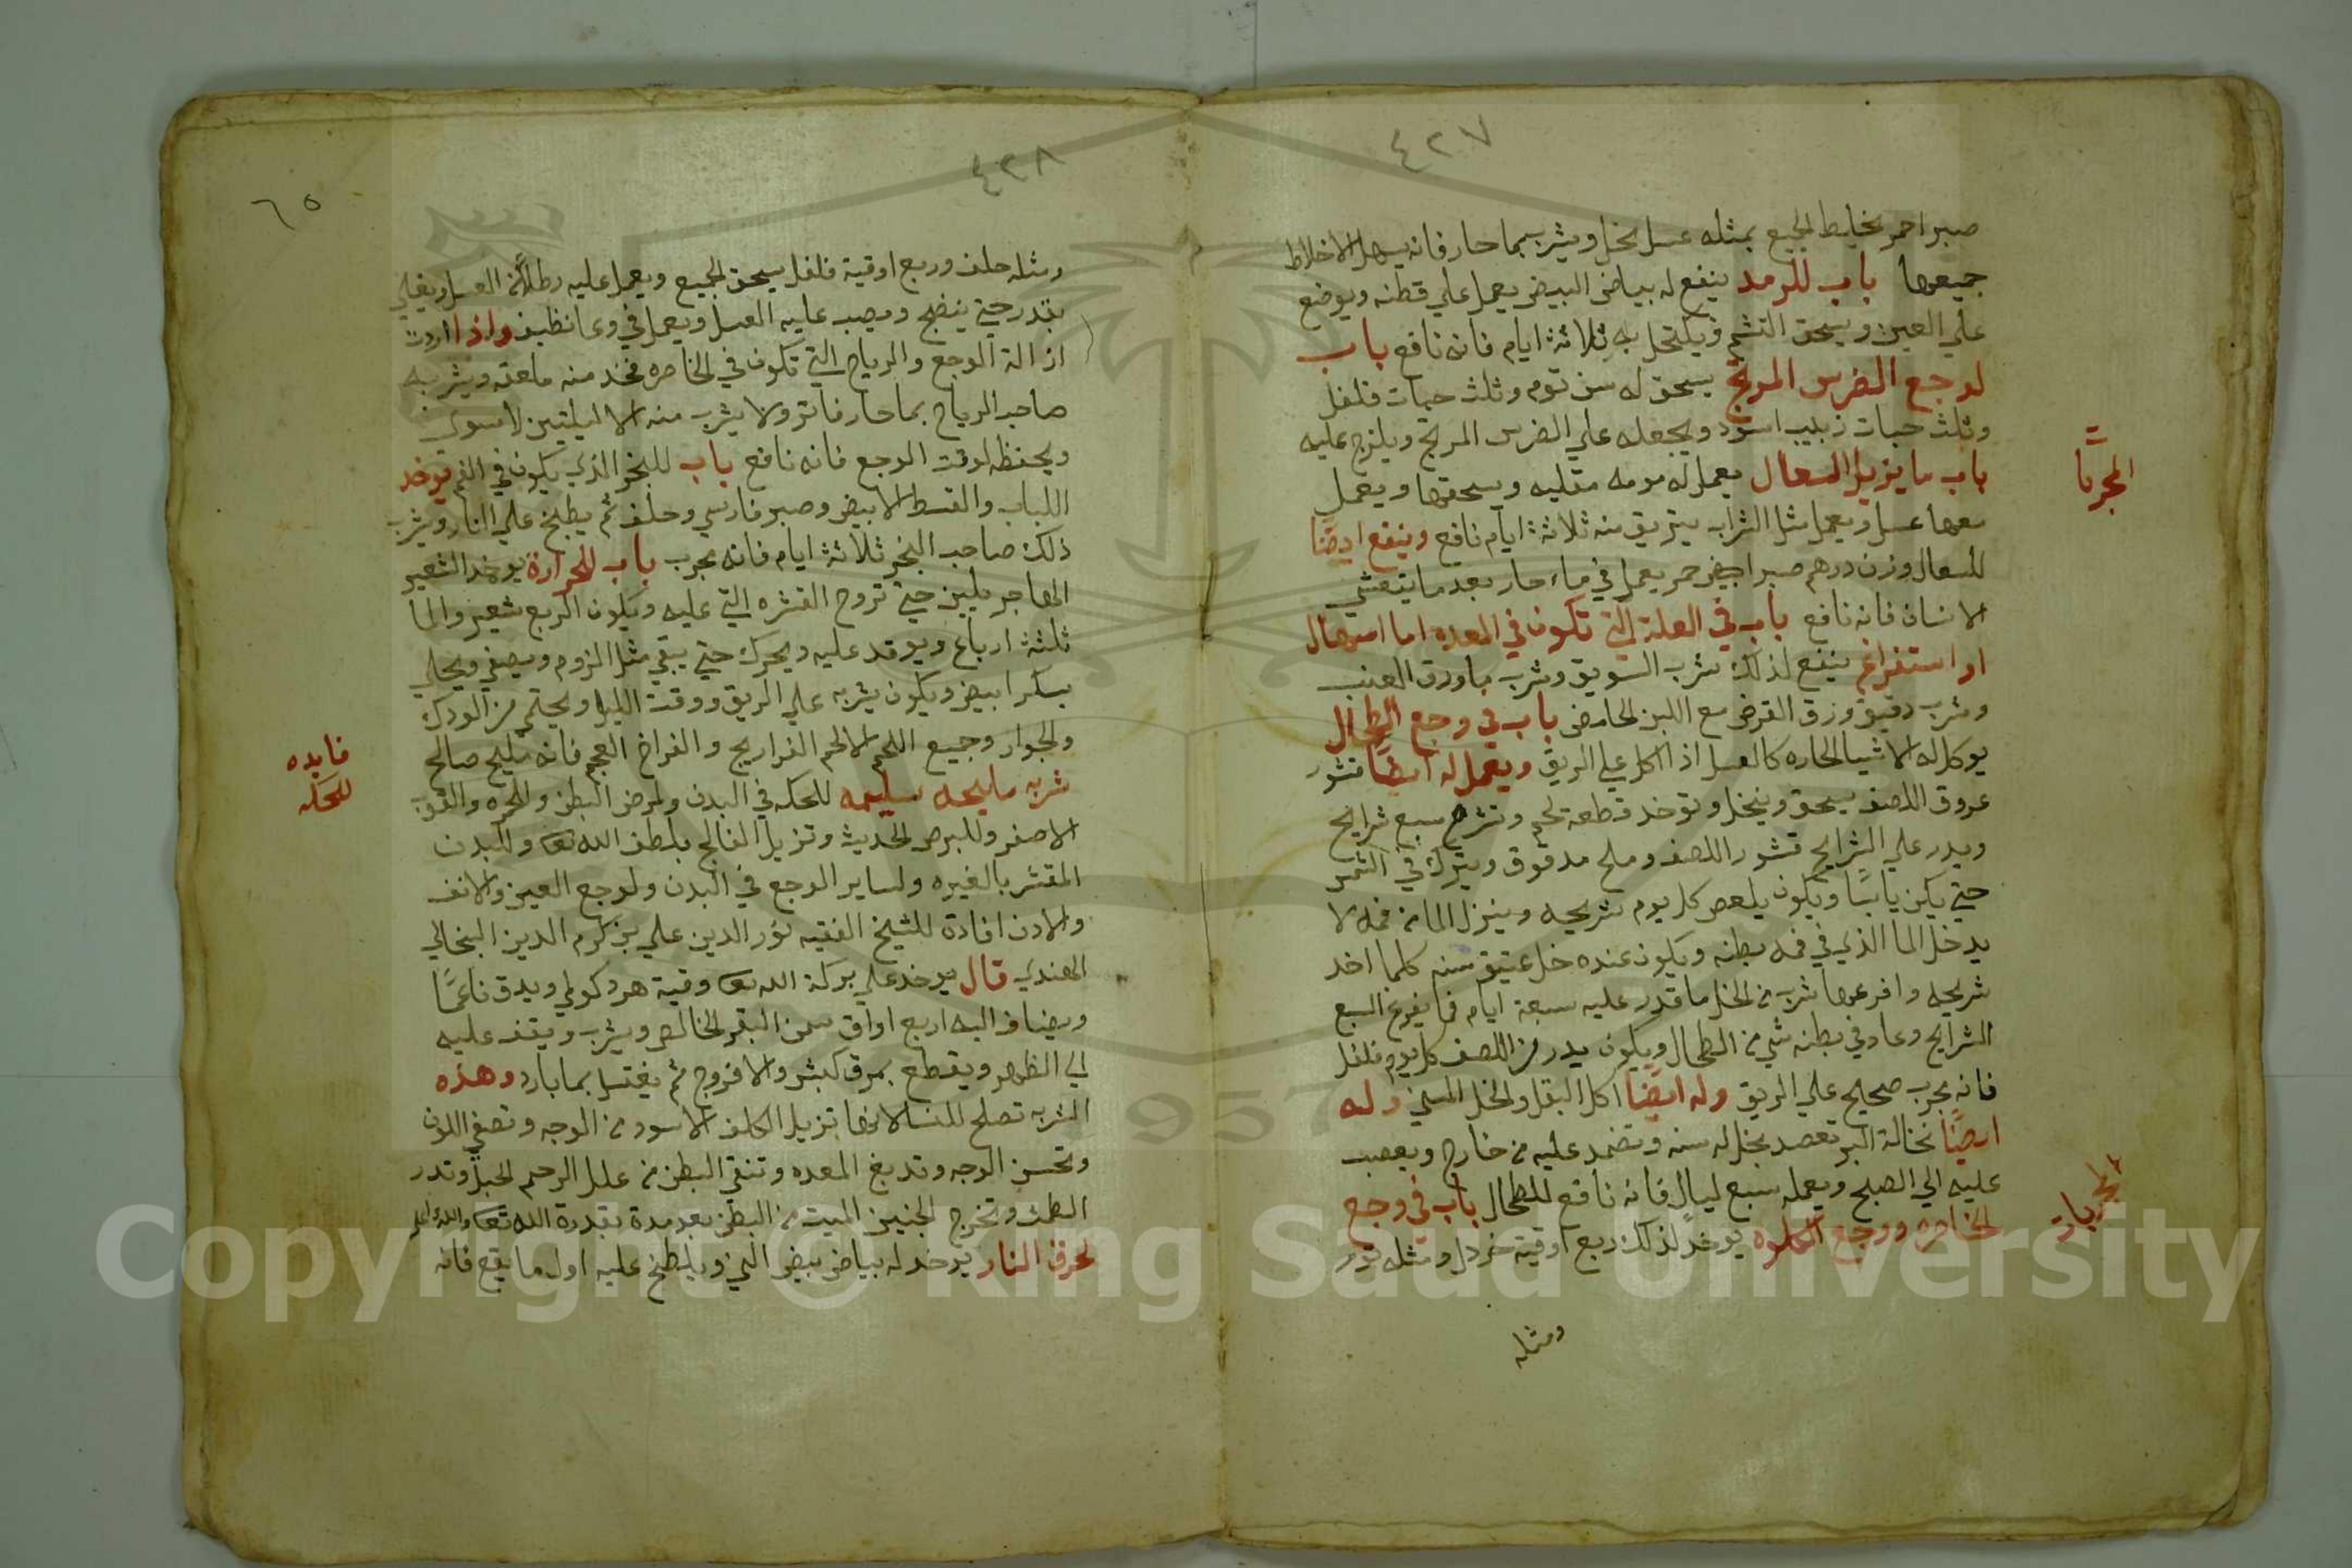 ٤٢٧
صبر احمر يخليط الجميع بمثله عسل نحل ويشرب بما حار فانه يسهل الاخلاط
جميعها باب للرمد ينفع له بياض البيض يعمل علي قطنه ويوضع
علي العين ويسحق التشم ويكتحل به ثلاثة ايام فانه نافع باب
لوجع الضرس المرتج يسحق له سن توم وثلث حبات فلفل
وثلث حبات زبيب اسود ويجعله علي الضرس المرتج ويلزج عليه
باب ما يزيل السعال يعمل له مومه مقليه ويسحقها ويعمل
معها عسل ويعمل مثل الشراب يتريق منه ثلاثة ايام نافع وينفع ايضا
للسعال وزن درهم صبر ابيض حمر يعمل في ماء حار بعد ما يتعشي
الانسان فانه نافع باب في العلة التي تكون في المعده اما اسهال
او استفراغ ينفع لذلك شرب السويق وشرب ماورق العنب
وشرب دقيق ورق القرض مع اللبن الحامض باب في وجع الطحال
يوكل له الاشيا الحاره كالعسل اذا اكل علي الريق ويعمل له ايضا قشور
عروق اللصف يسحق وينخل وتوخد قطعة لحم وتشرح سبع شرايح
ويدر علي الشرايح قشور اللصف وملح مدقوق ويترك في الشمس
حتي يكن يابسا ويكون يلعص كل يوم شريحه وينزل الما من فمه لا
يدخل الما الذي في فمه بطنه ويكون عنده خل عتيق سنه كلما اخد
شريحه وافرعها شرب من الخل ما قدر عليه سبعة ايام فما يفرغ السبع
الشرايح وعاد في بطنه شي من الطحال ويكون يدر من اللصف كل يوم فلفل
فانه مجرب صحيح علي الريق وله ايضا اكل البقل والخل المسني وله
ايضا نخالة البر تعصد بخل له سنه وتضمد عليه من خارج ويعصب
عليه الي الصبح ويعمله سبع ليال فانه نافع للطحال باب في وجع
الخاصره ووجع الكلوه يوخد لذلك ربع اوقية خردل ومثله
ومثله
المجربا
المجربات
٤٣٨
٦٥
ومثله حلف وربع اوقية فلفل يسحق الجميع ويعمل عليه رطلا من العسل ويغلي
بقدر حتي ينضج ويصب عليه العسل ويعمل في وعا نظيف واذا اردت
ازالة الوجع والرياح التي تكون في الخاصره فخد منه ملعقه ويشربه
صاحب الرياح بما حار فاتر ولا يشرب منه الا ليلتين لا سوي
ويحفظه لوقت الوجع فانه نافع باب للبخر الذي يكون في الفم توخد
اللباب والقسط الابيض وصبر فارسي وحلف ثم يطبخ علي النار ويشرب
ذلك صاحب البخر ثلاثة ايام فانه مجرب باب للحرارة يوخد الشعير
الهاجر يلين حتي تروح القشره التي عليه ويكون الربع شعير والما
ثلثة ارباع ويوقد عليه ويحرك حتي يبقي مثل الزوم ويصفي ويحلي
بسكر ابيض ويكون يشربه علي الريق ووقت الليل ويحتمي من الودك
والجوار وجميع اللحم الا لحم الفراريج والفراخ العجم فانه مليح صالح
شربه مليحه سليمه للحكه في البدن ولمرض البطن وللحمره والقوب
الاصفر وللبرص الحديث وتزيل الفالج بلطف الله تعا وللبدن
المقشر بالغيره ولساير الوجع في البدن ولوجع العين والانف
والادن افادة للشيخ الفقيه نور الدين علي بن كرم الدين البخالي
الهندي قال يوخد علي بركة الله تعا وقية هرد كوطي ويدق ناعما
ويضاف اليه اربع اواق سمن البقر الخالص ويشرب ويقف عليه
الي الظهر ويقطع بمرق كبش والا فروج ثم يغتسل بما بارد وهذه
الشربه تصلح للنسا لانها تزيل الكلف الاسود من الوجه وتصفي اللون
وتحسن الوجه وتدبغ المعده وتنقي البطن من علل الرحم الحبل وتدر
الطمث وتخرج الجنين الميت من البطن بعد مدة بقدرة الله تعا والله اعلم
لحرق النار يوخد له بياض بيض الني ويلطخ عليه اول ما يقع فانه
فايده
للحكه
Copyright © King Saud University
957